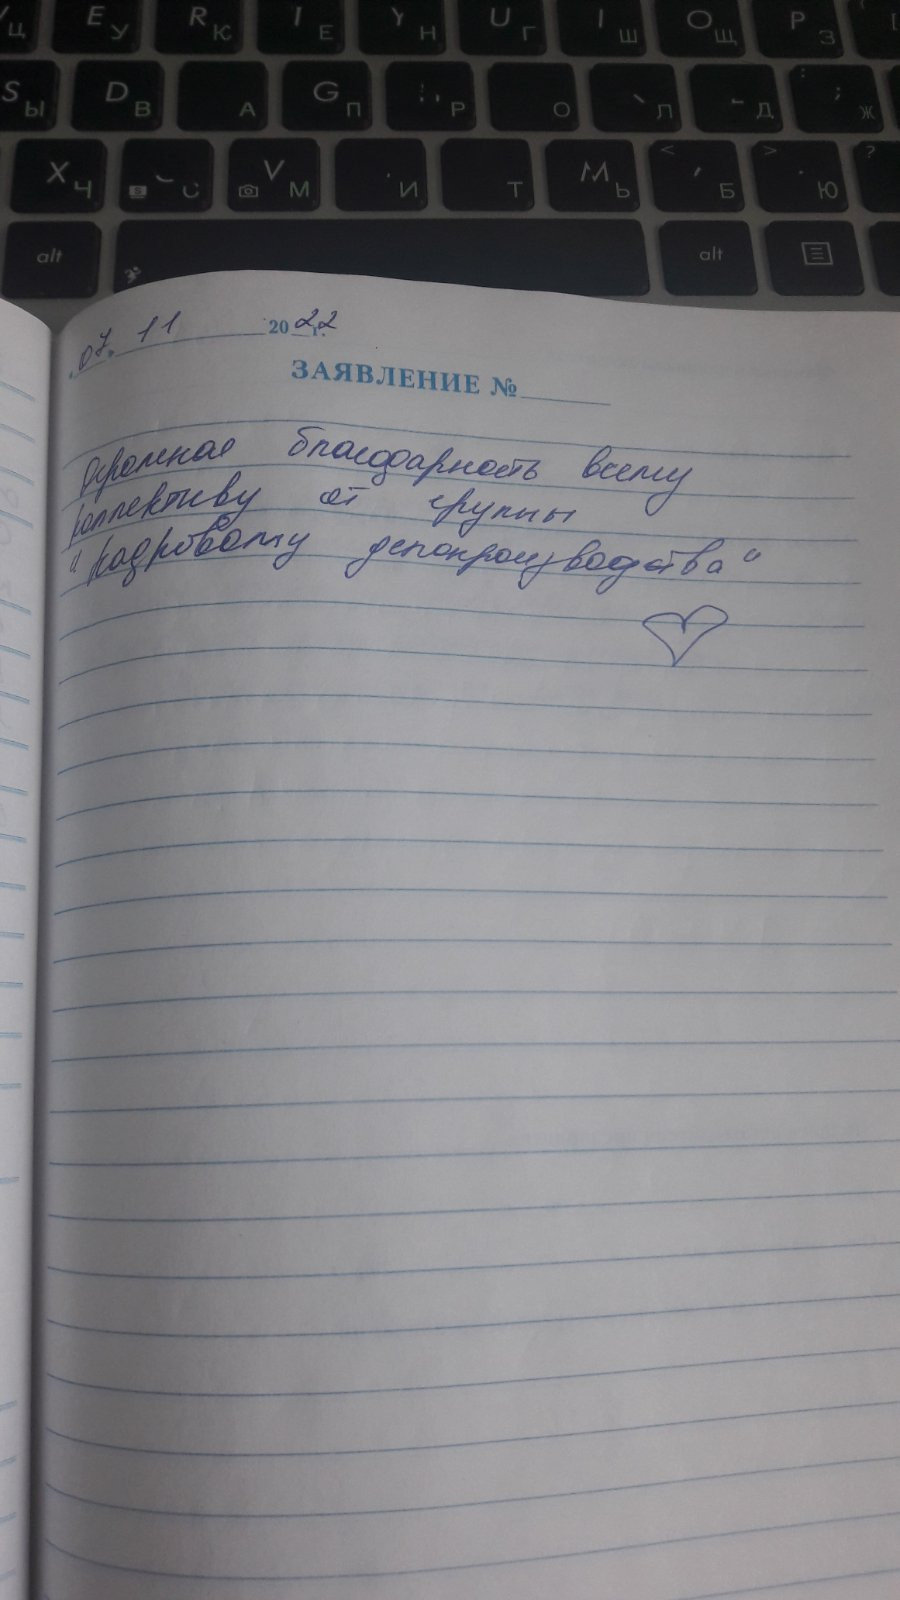 Ц E У R К T Е Y Н U Г I Ш O Щ P З
S Ы D В А G П Р О Л Д Ж
X Ч С V М И Т M Ь < Б > Ю ?
alt alt
07. 11 2022г.
ЗАЯВЛЕНИЕ №
Огромная благодарность всему
коллективу от группы
"кадровому делопроизводства"